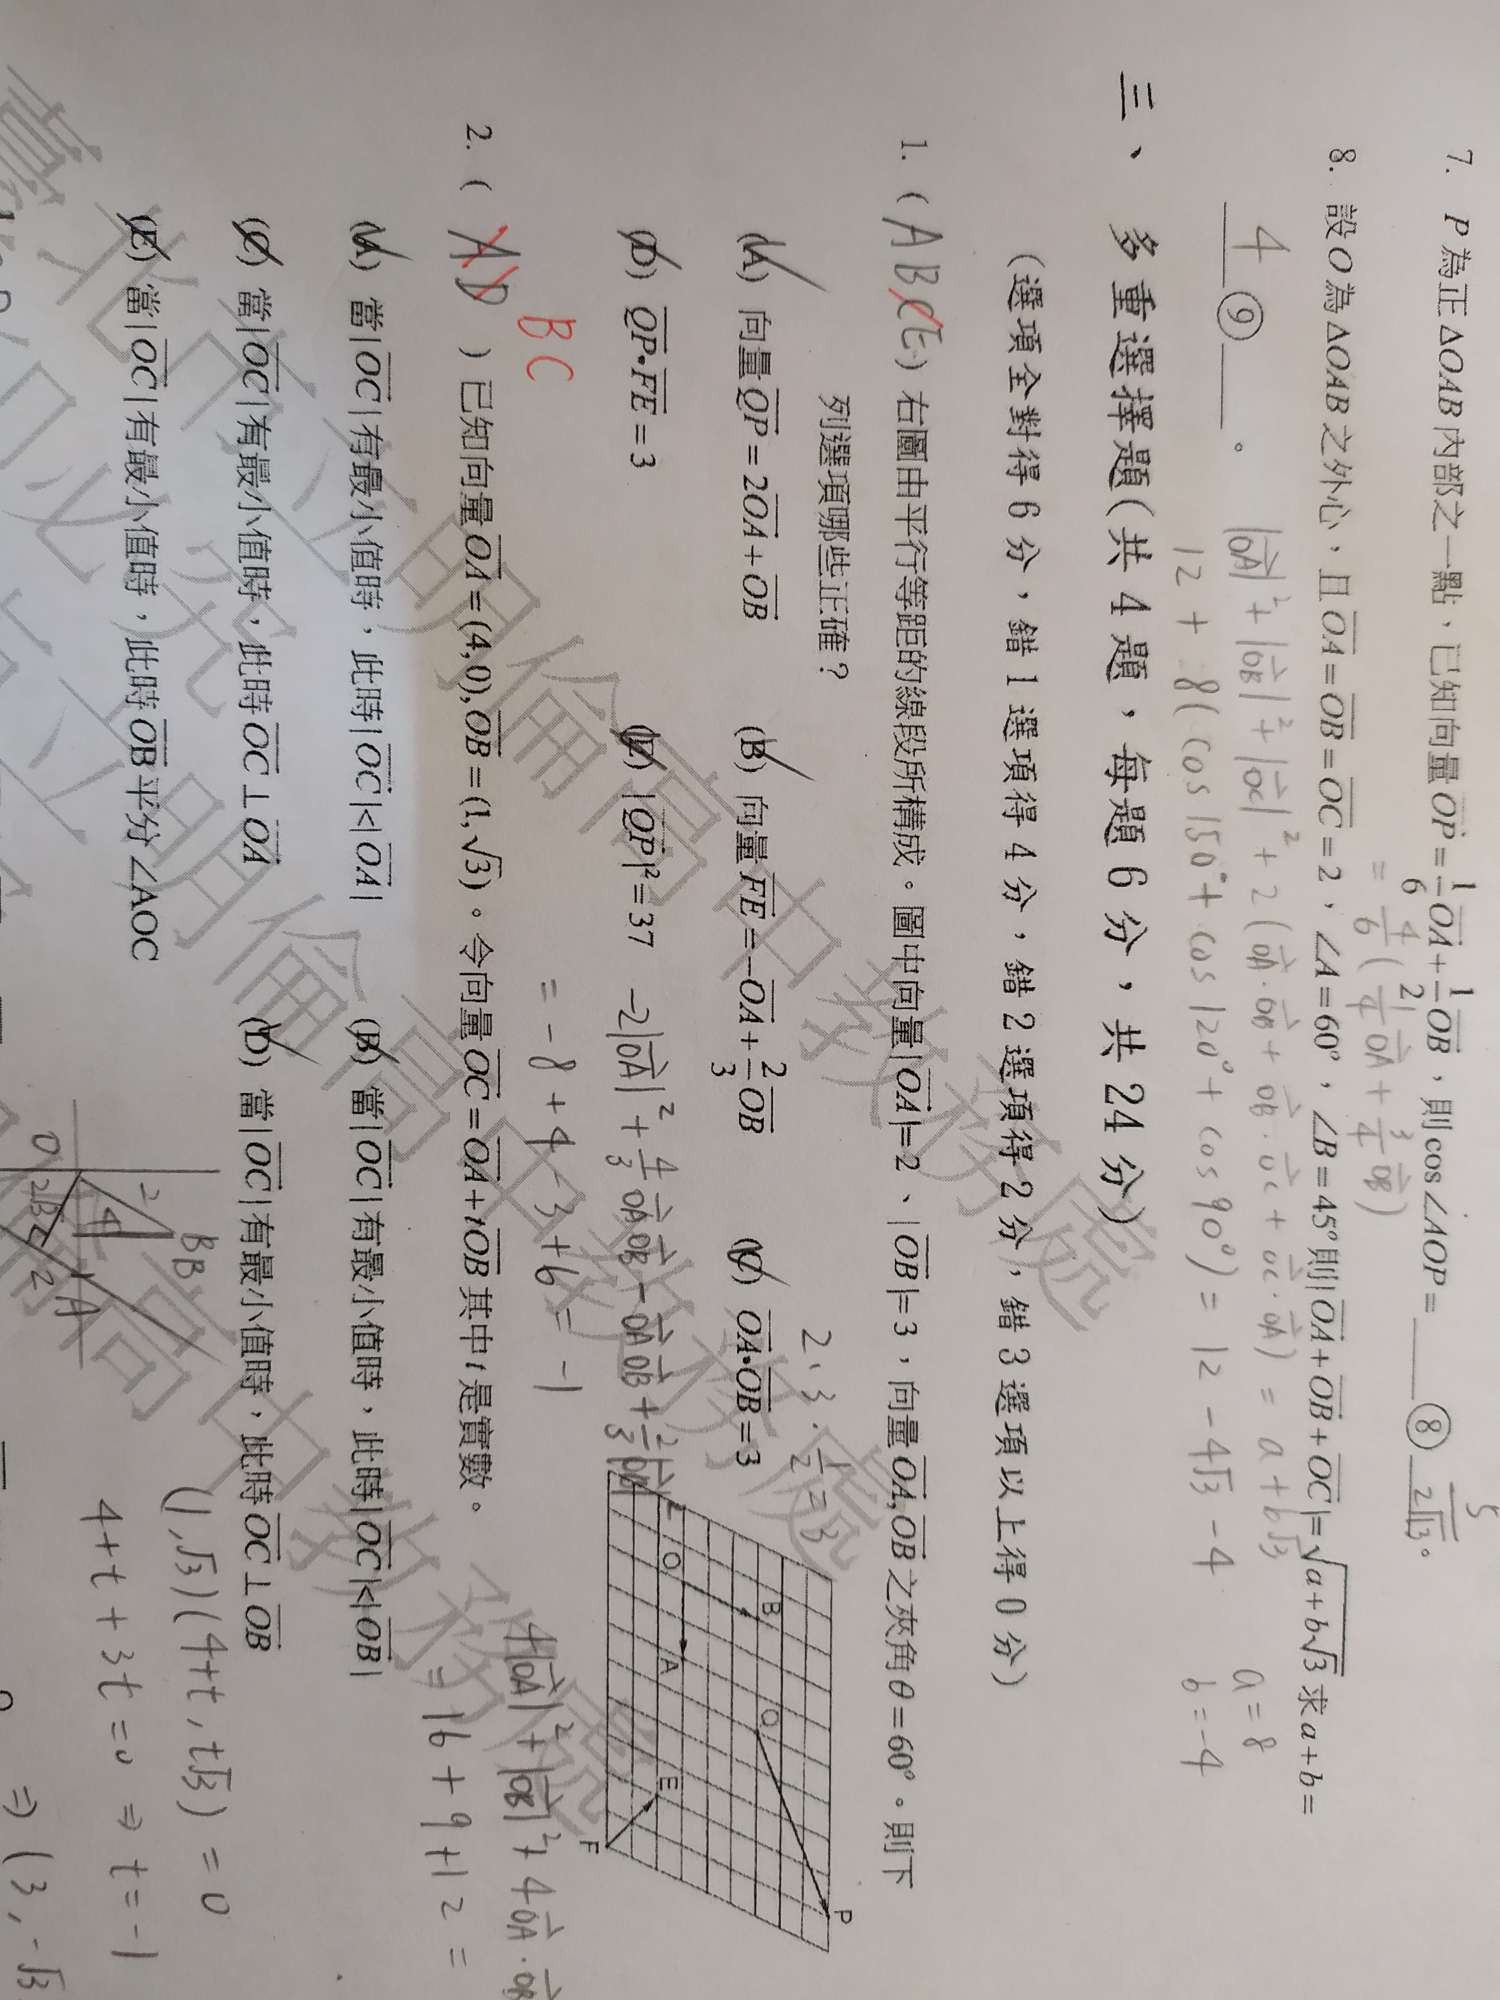 7. P為正△OAB內部之一點、已知向量OP=1/6 OA+1/2 OB，則cos∠AOP=____⑧ 5/(2√13)。
=4/6(1/4 OA+3/4 OB)
8. 設O為△OAB之外心，且OA=OB=OC=2、∠A=60°，∠B=45°則|OA+OB+OC|=√(a+b√3)求a+b=
4 ⑨____。
|OA|²+|OB|²+|OC|²+2(OA·OB+OB·OC+OC·OA)=a+b√3
a=8
12+8(cos150°+cos120°+cos90°)=12-4√3-4
b=-4
三、多重選擇題(共4題，每題6分，共24分)
(選項全對得6分，錯1選項得4分，錯2選項得2分，錯3選項以上得0分)
1. (ABCE)右圖由平行等距的線段所構成。圖中向量|OA|=2、|OB|=3，向量OA,OB之夾角θ=60°。則下
列選項哪些正確?
2·3·1/2=3
(A) 向量QP=2OA+OB (B) 向量FE=-OA+2/3 OB (C) OA·OB=3
(D) QP·FE=3 (E) |QP|²=37
-2|OA|²+4/3 OA OB-OA OB+2/3|OB|²
=-8+4-3+6=-1
O B A Q P E F
4|OA|²+|OB|²+4OA·OB
=16+9+12=
BC
2. (AD)已知向量OA=(4,0),OB=(1,√3)。令向量OC=OA+tOB其中t是實數。
(A) 當|OC|有最小值時，此時|OC|<|OA| (B) 當|OC|有最小值時，此時|OC|<|OB|
(C) 當|OC|有最小值時，此時OC⊥OA (D) 當|OC|有最小值時，此時OC⊥OB
(E) 當|OC|有最小值時，此時OB平分∠AOC
(1,√3)(4+t,t√3)=0
4+t+3t=0⇒t=-1
⇒(3,-√3
臺北市立明倫高中教務處